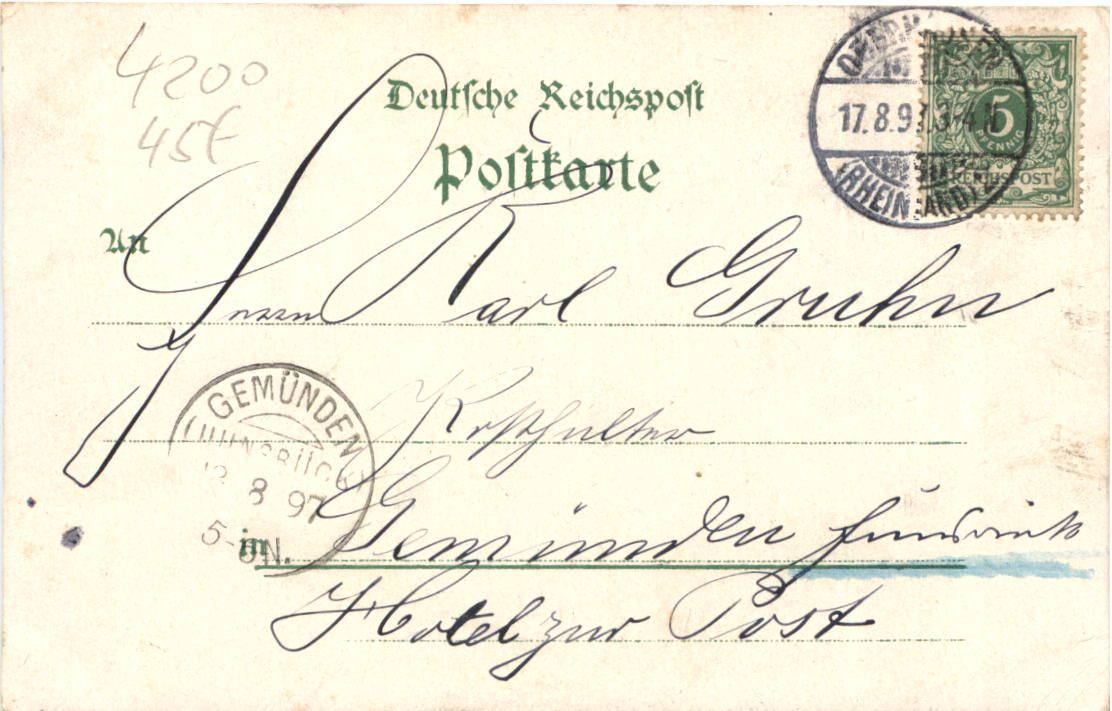 4200
45€
Deutsche Reichspost
Postkarte
17.8.97. 3-4 N
(RHEINLAND)
5
PFENNIG
REICHSPOST
An
Herrn Karl Gruhn
GEMÜNDEN
(HUNSRÜCK)
8 97
5- N.
in Gemünden Hunsrück
Hotel zur Post